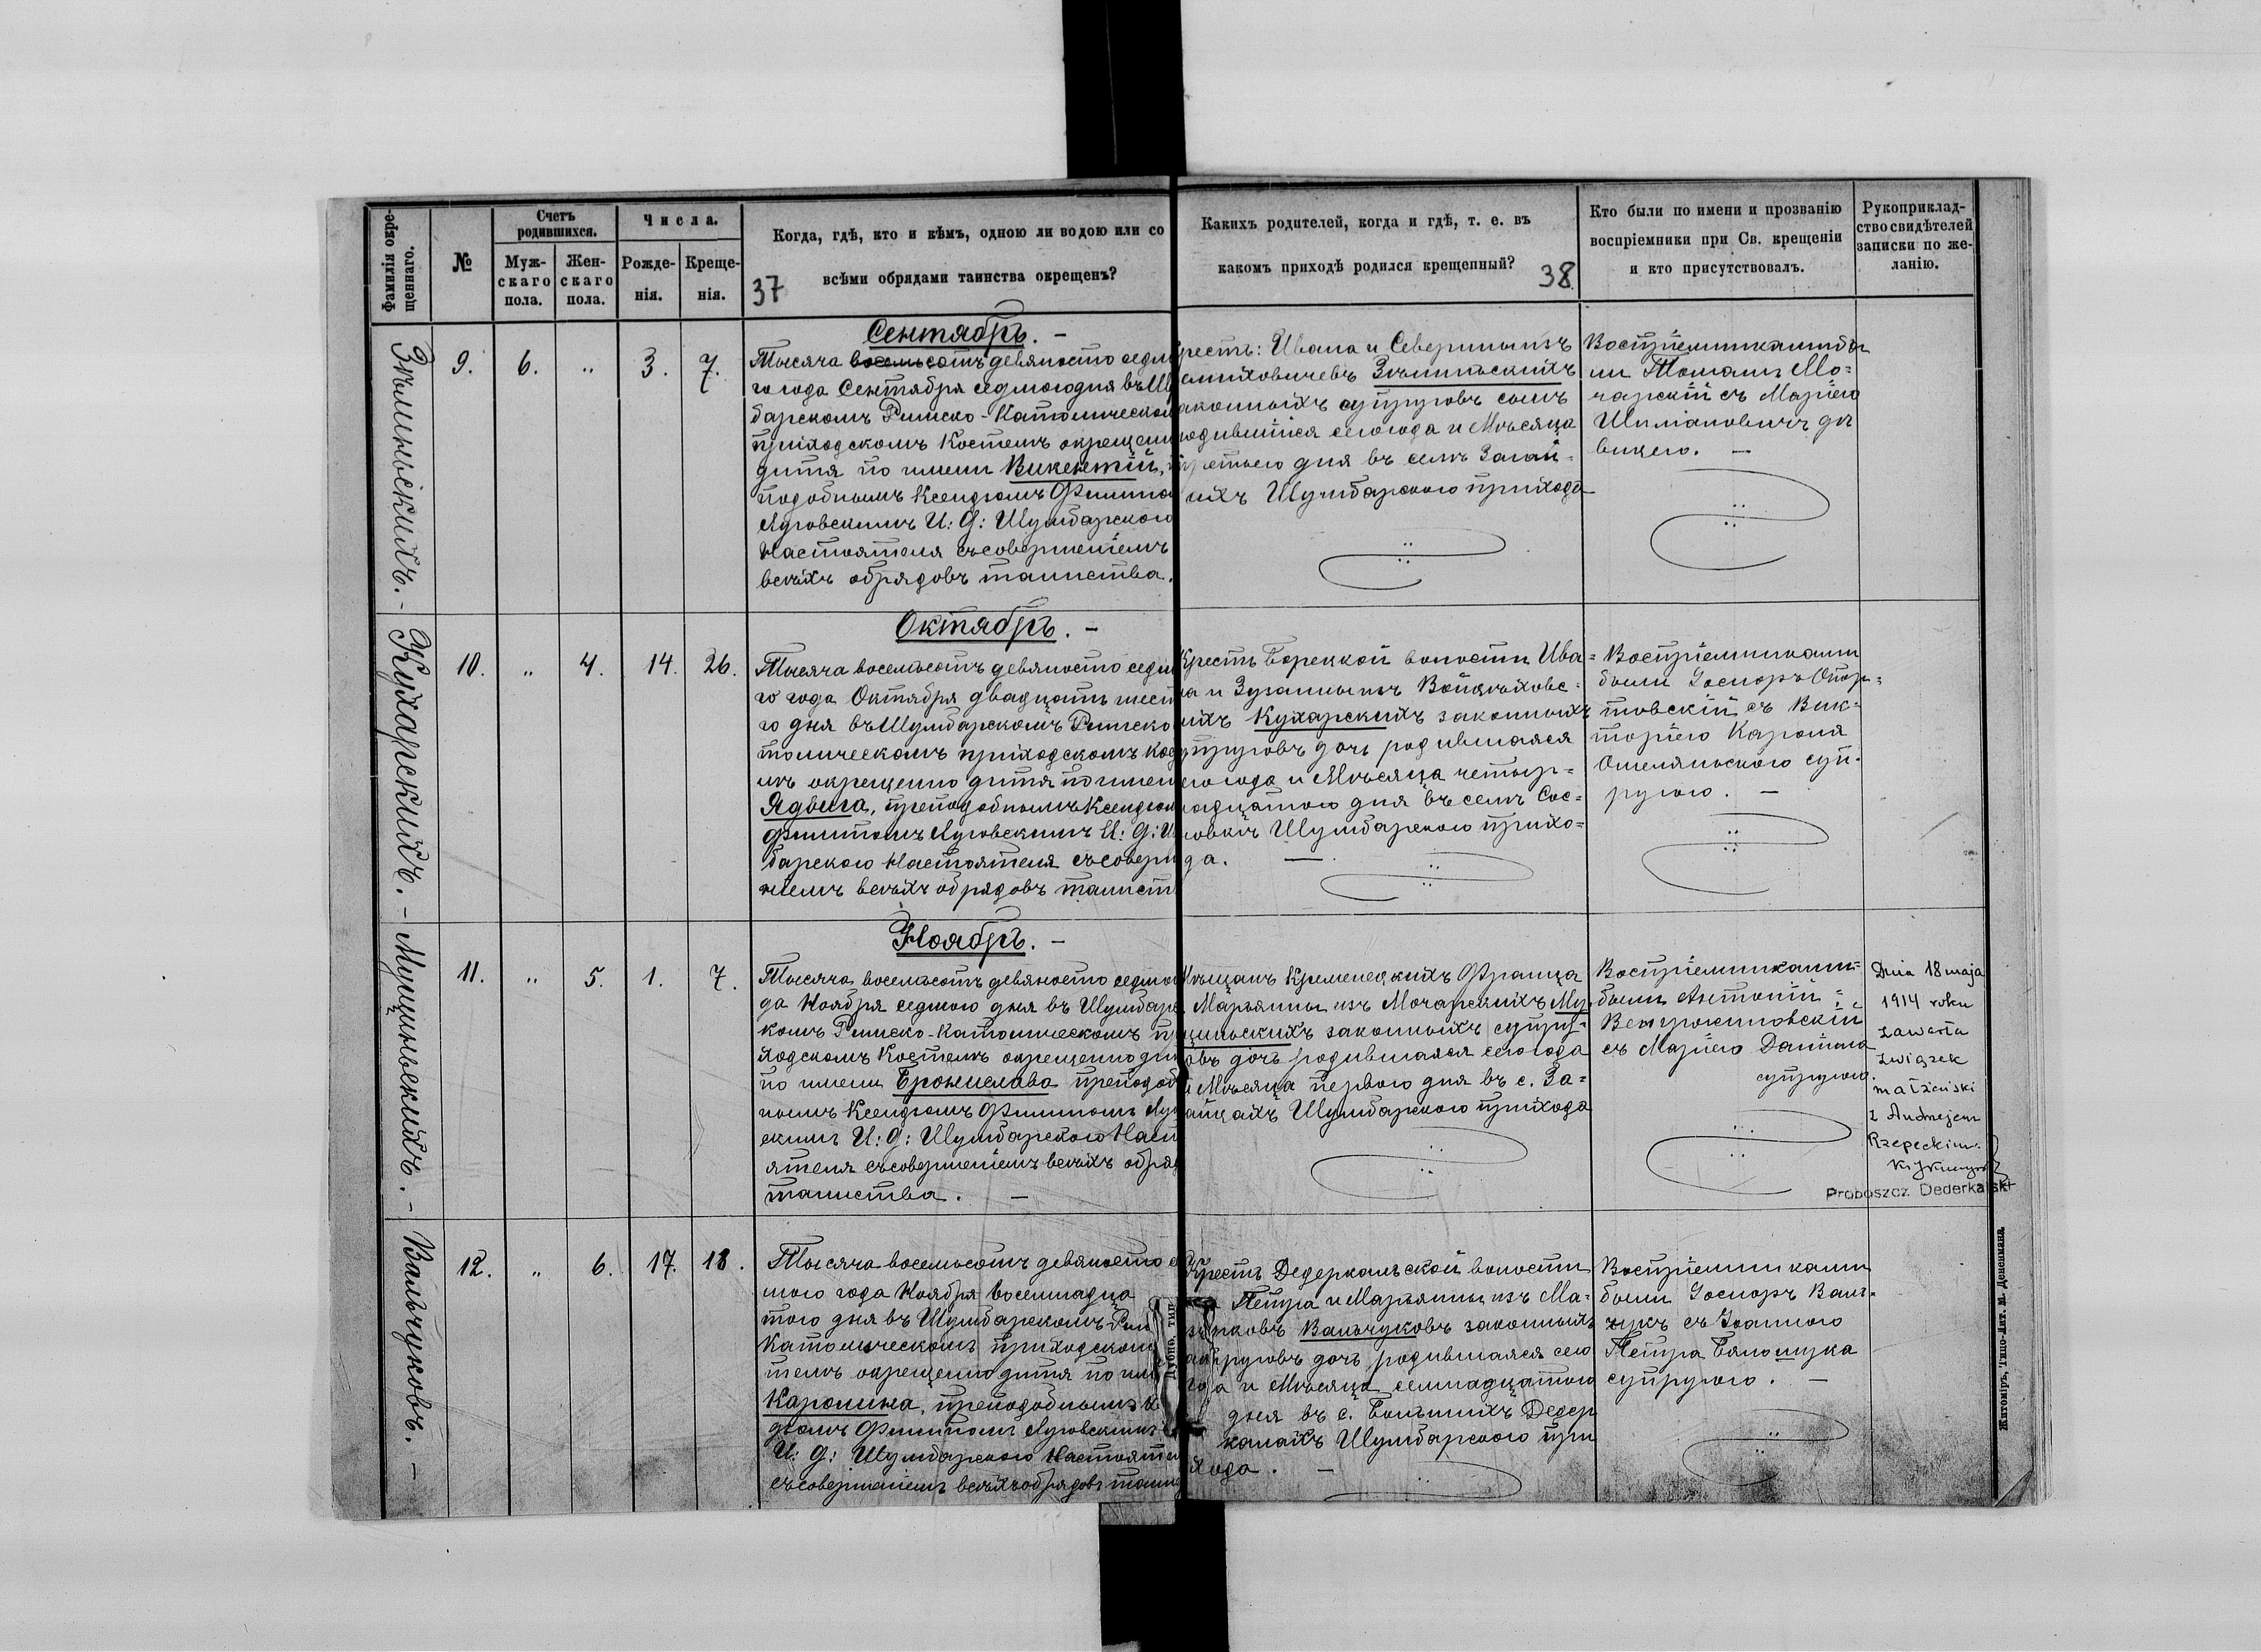 Фамилія окре-
щеннаго.
№
Счетъ
родившихся.
Муж-
скаго
пола.
Жен-
скаго
пола.
Числа.
Рожде-
нія.
Креще-
нія.
Когда, гдѣ, кто и кѣмъ, одною ли водою или со
всѣми обрядами таинства окрещенъ?
37
Какихъ родителей, когда и гдѣ, т. е. въ
какомъ приходѣ родился крещенный?
38
Кто были по имени и прозванію
воспріемники при Св. крещеніи
и кто присутствовалъ.
Рукоприклад-
ство свидѣтелей
записки по же-
ланію.
Сентябрь. -
9. 6. „ 3. 7.
Тысяча восемьсотъ девяносто седм
го года Сентября седмого дня въ Шу
барскомъ Римско-Католическом
приходскомъ Костелѣ окрещен
дитя по имени Викентій,
подобнымъ Ксендзомъ Филиппо
Луговскимъ И: Д: Шумбарского
Настоятеля съ совершеніемъ
всѣхъ обрядовъ таинства.
рестъ: Ивана и Северины изъ
законныхъ супруговъ сынъ
родившійся сего года и Мѣсяца
третьего дня въ селѣ Загай-
цахъ Шумбарского прихода
Воспріемниками бы
ли Томашъ Мо-
чарскій съ Маріею
вицею. -
Октябрь. -
Кухарскихъ. -
10. „ 4. 14. 26.
Тысяча восемьсотъ девяносто седм
го года Октября двадцать шест
го дня въ Шумбарскомъ Римско
толическомъ приходскомъ Кос
лѣ окрещено дитя по имен
Ядвига, преподобнымъ Ксендзом
Филиппомъ Луговскимъ И: Д: Шу
барского Настоятеля съ соверш
ніемъ всѣхъ обрядовъ таинст
Крестъ Борецкой волости Ива-
на и Зузанны изъ Войцѣховс-
кихъ Кухарскихъ законныхъ
супруговъ дочь родившаяся
сего года и Мѣсяца четыр-
надцатого дня въ селѣ Сос-
новкѣ Шумбарского прихо-
да. -
Воспріемниками
были Госпоръ
съ Вик-
торіею Кароля
Омелянского суп-
ругою. -
Ноябрь. -
Мущинскихъ. -
11. „ 5. 1. 7.
Тысяча восемьсотъ девяносто седмо
да Ноября седмого дня въ Шумбарс
комъ Римско-Католическомъ пр
ходскомъ Костелѣ окрещено дит
по имени Брониславa преподоб
нымъ Ксендзомъ Филиппомъ Луг
скимъ И: Д: Шумбарского Наст
ятеля съ совершеніемъ всѣхъ обряд
таинства. -
Мѣщанъ Кременецкихъ Франца
Марьянны изъ Мочарскихъ Му
щинскихъ законныхъ супруг-
овъ дочь родившаяся сего года
и Мѣсяца первого дня въ с. За-
гайцахъ Шумбарского прихода
Воспріемниками-
были Антоній
съ Маріею Даніила
супругою.
Dnia 18 maja
1914 roku
zawarła
związek
małżeński
z Andrzejem
Rzepeckim.
Proboszcz Dederkalski
Вальчуковъ. -
12. „ 6. 17. 18.
Тысяча восемьсотъ девяносто се
мого года Ноября восемнадца
того дня въ Шумбарскомъ Рим
Католическомъ приходском
телѣ окрещено дитя по им
Каролина, преподобнымъ К
дзомъ Филиппомъ Луговскимъ
И: Д: Шумбарского Настояте
съ совершеніемъ всѣхъ обрядовъ таин
Крестъ Дедеркальской волости
Петра и Марьянны изъ Ма-
Вальчуковъ законныхъ
супруговъ дочь родившаяся сего
года и Мѣсяца семнадцатого
дня въ с. Большихъ Дедер
калахъ Шумбарского при
хода. -
Воспріемниками
были Госпоръ Валь-
чукъ съ Іоанною
Петра Бялощука
супругою. -
Житоміръ, Типо-Лит. М. Дененмана.